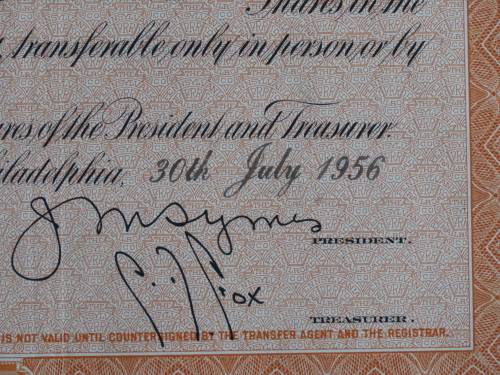 Shares in the
, transferable only in person or by
res of the President and Treasurer.
iladelphia, 30th July 1956
J M Symes
PRESIDENT.
C. J. Fox
TREASURER.
IS NOT VALID UNTIL COUNTERSIGNED BY THE TRANSFER AGENT AND THE REGISTRAR.